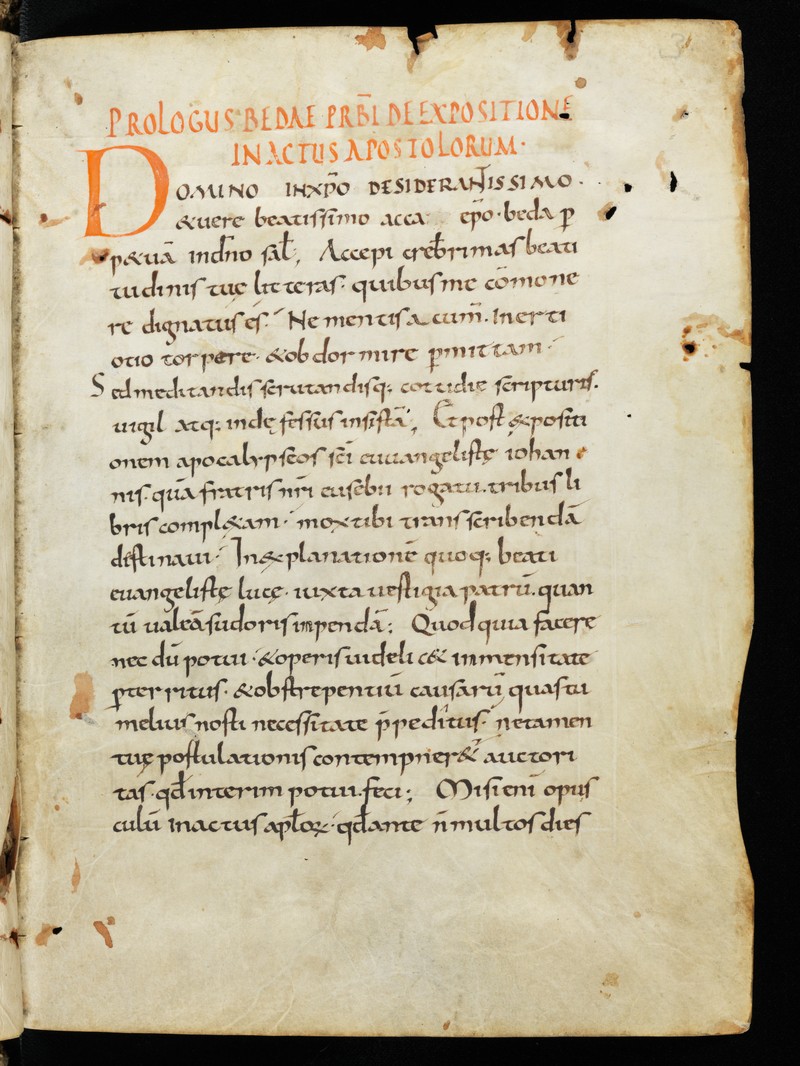 PROLOGUS BEDAE PRB̄I DE EXPOSITIONE
IN ACTUS APOSTOLORUM·
DOMINO INXP̄O DESIDERANTISSIMO·
&uere beatissimo acca ep̄o·beda p̄
p&uā indn̄o sal̄, Accepi creb̄rimas beati
tudinis tuę litteras· quibus me cōmone
re dignatus es̄· Ne mentis acum̄· inerti
otio torpere· &obdormire p̄mittam·
Sed meditandis scrutandisq; cottidię scripturis·
uigil atq; indę fessus insistā, Et post expositi
onem apocalypseos sc̄i euuangelistę iohan
nis· quā fratris nr̄i eusebii rogatu· tribus li
bris compl&am· mox tibi transscribendā
distinaui· In explanationē quoq; beati
euangelistę lucę· iuxta uestigia patrū· quan
tū ualeā sudoris inpendā; Quod quia facere
nec dū potui· &operis uidelic& inmensitate
p̄territus· &obstrepentiū causarū quas tu
melius nosti necessitate p̄peditus· ne tamen
tuę postulationis contempner& auctori
tas· qđ interim potui· feci; Misi eni opus
culū in actus aplōꝝ· qđ ante n̄ multos dies